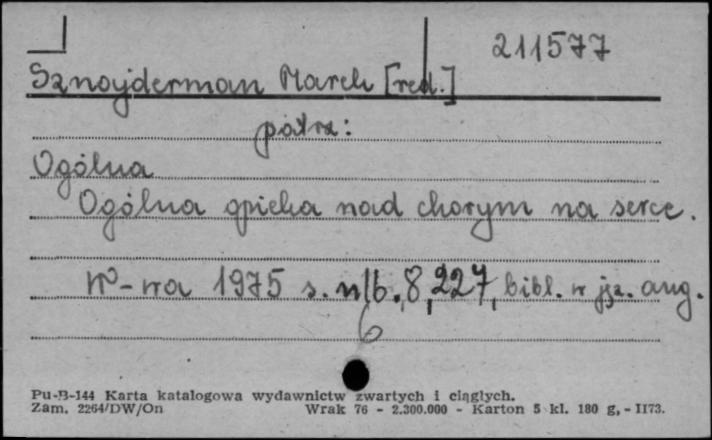 211577
Sznajderman Marek [red.]
patrz:
Ogólna
Ogólna opieka nad chorym na serce.
W-wa 1975 s. nlb. 8, 227, bibl. w jęz. ang.
6
Pu-B-144 Karta katalogowa wydawnictw zwartych i ciągłych.
Zam. 2264/DW/On Wrak 76 - 2.300.000 - Karton 5 kl. 180 g, - II73.